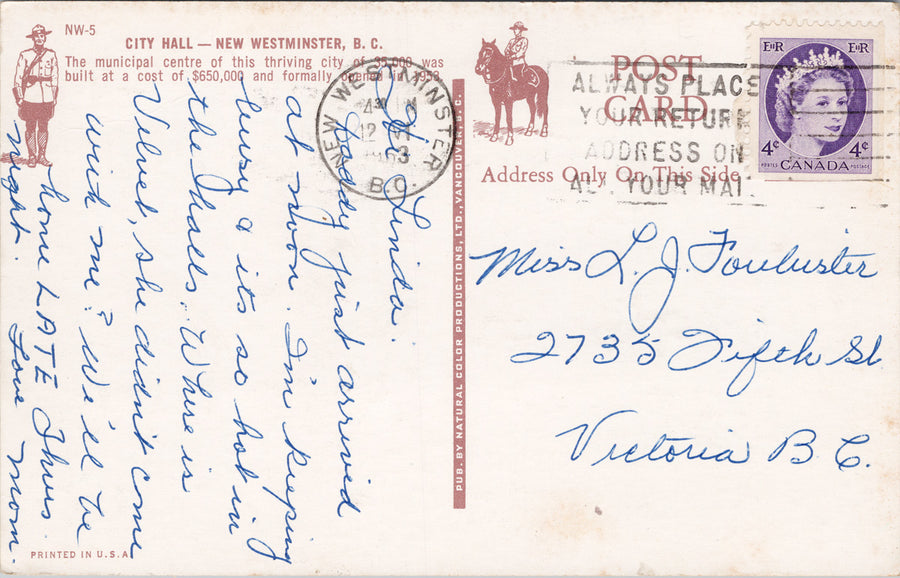 NW-5
CITY HALL — NEW WESTMINSTER, B. C.
The municipal centre of this thriving city of 35,000 was
built at a cost of $650,000 and formally opened in 1953.
Hi Linda:
Daddy just arrived
at noon. I'm keeping
busy & its so hot in
the halls. Where is
Velvet, she didn't come
with me? We'll be
home LATE Thurs.
night.
Love Mom.
PRINTED IN U.S.A.
PUB. BY NATURAL COLOR PRODUCTIONS, LTD., VANCOUVER, B.C.
NEW WESTMINSTER
4 30 PM
12
1963
B.C.
POST
CARD
Address Only On This Side
ALWAYS PLACE
YOUR RETURN
ADDRESS ON
ALL YOUR MAIL
EIIR EIIR
4¢ 4¢
POSTES CANADA POSTAGE
Miss L. J.
2735 Fifth St
Victoria B.C.